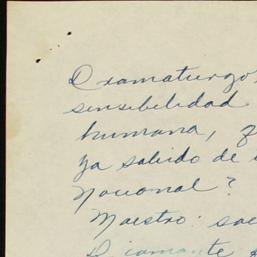 Dramaturgo,
sensibilidad
humana,
ya salido de
Nacional?
Maestro:
Diamante